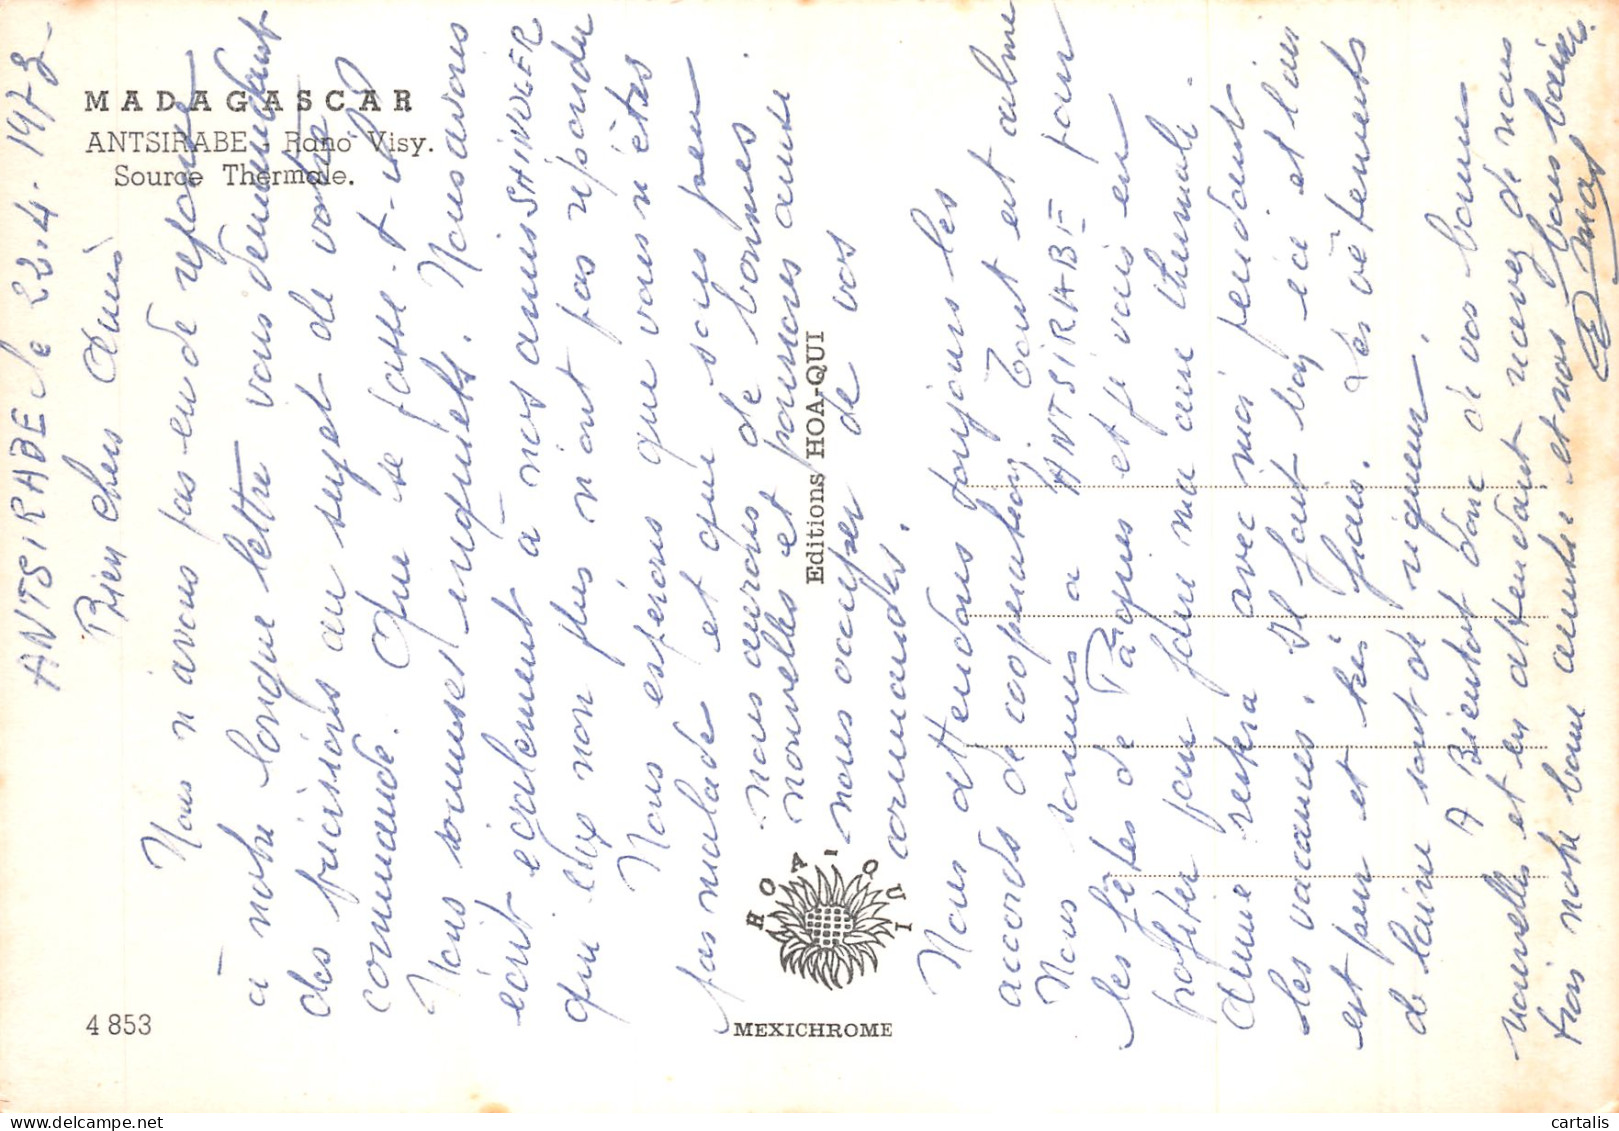 MADAGASCAR
ANTSIRABE - Rano Visy.
Source Thermale.
ANTSIRABE le 22.4.1973 -
Bien chers Amis
Nous n'avons pas eu de réponse
à notre longue lettre vous demandant
des précisions au sujet de votre
commande. Que se passe-t-il
Nous sommes inquiets. Nous avons
écrit également à nos amis SHINDGER
qui eux non plus n'ont pas répondu
Nous espérons que vous n'êtes
pas malade et que sous peu
nous aurons de bonnes
nouvelles et pourrons aussi
nous occuper de vos
commandes.
Nous attendons toujours les
accords de coopération. Tout est calme
Nous sommes à ANTSIRABE pour
les fêtes de Pâques et je vais en
profiter pour faire ma cure thermale.
Anne restera avec moi pendant
les vacances. Il fait bon ici et l'air
est pur et très frais. Les vêtements
de laine sont de rigueur.
A Bientôt donc de vos bonnes
nouvelles et en attendant recevez de nous
trois notre bonne amitié et nos bons baisers.
Editions HOA-QUI
HOA-QUI
MEXICHROME
4 853
cartalis